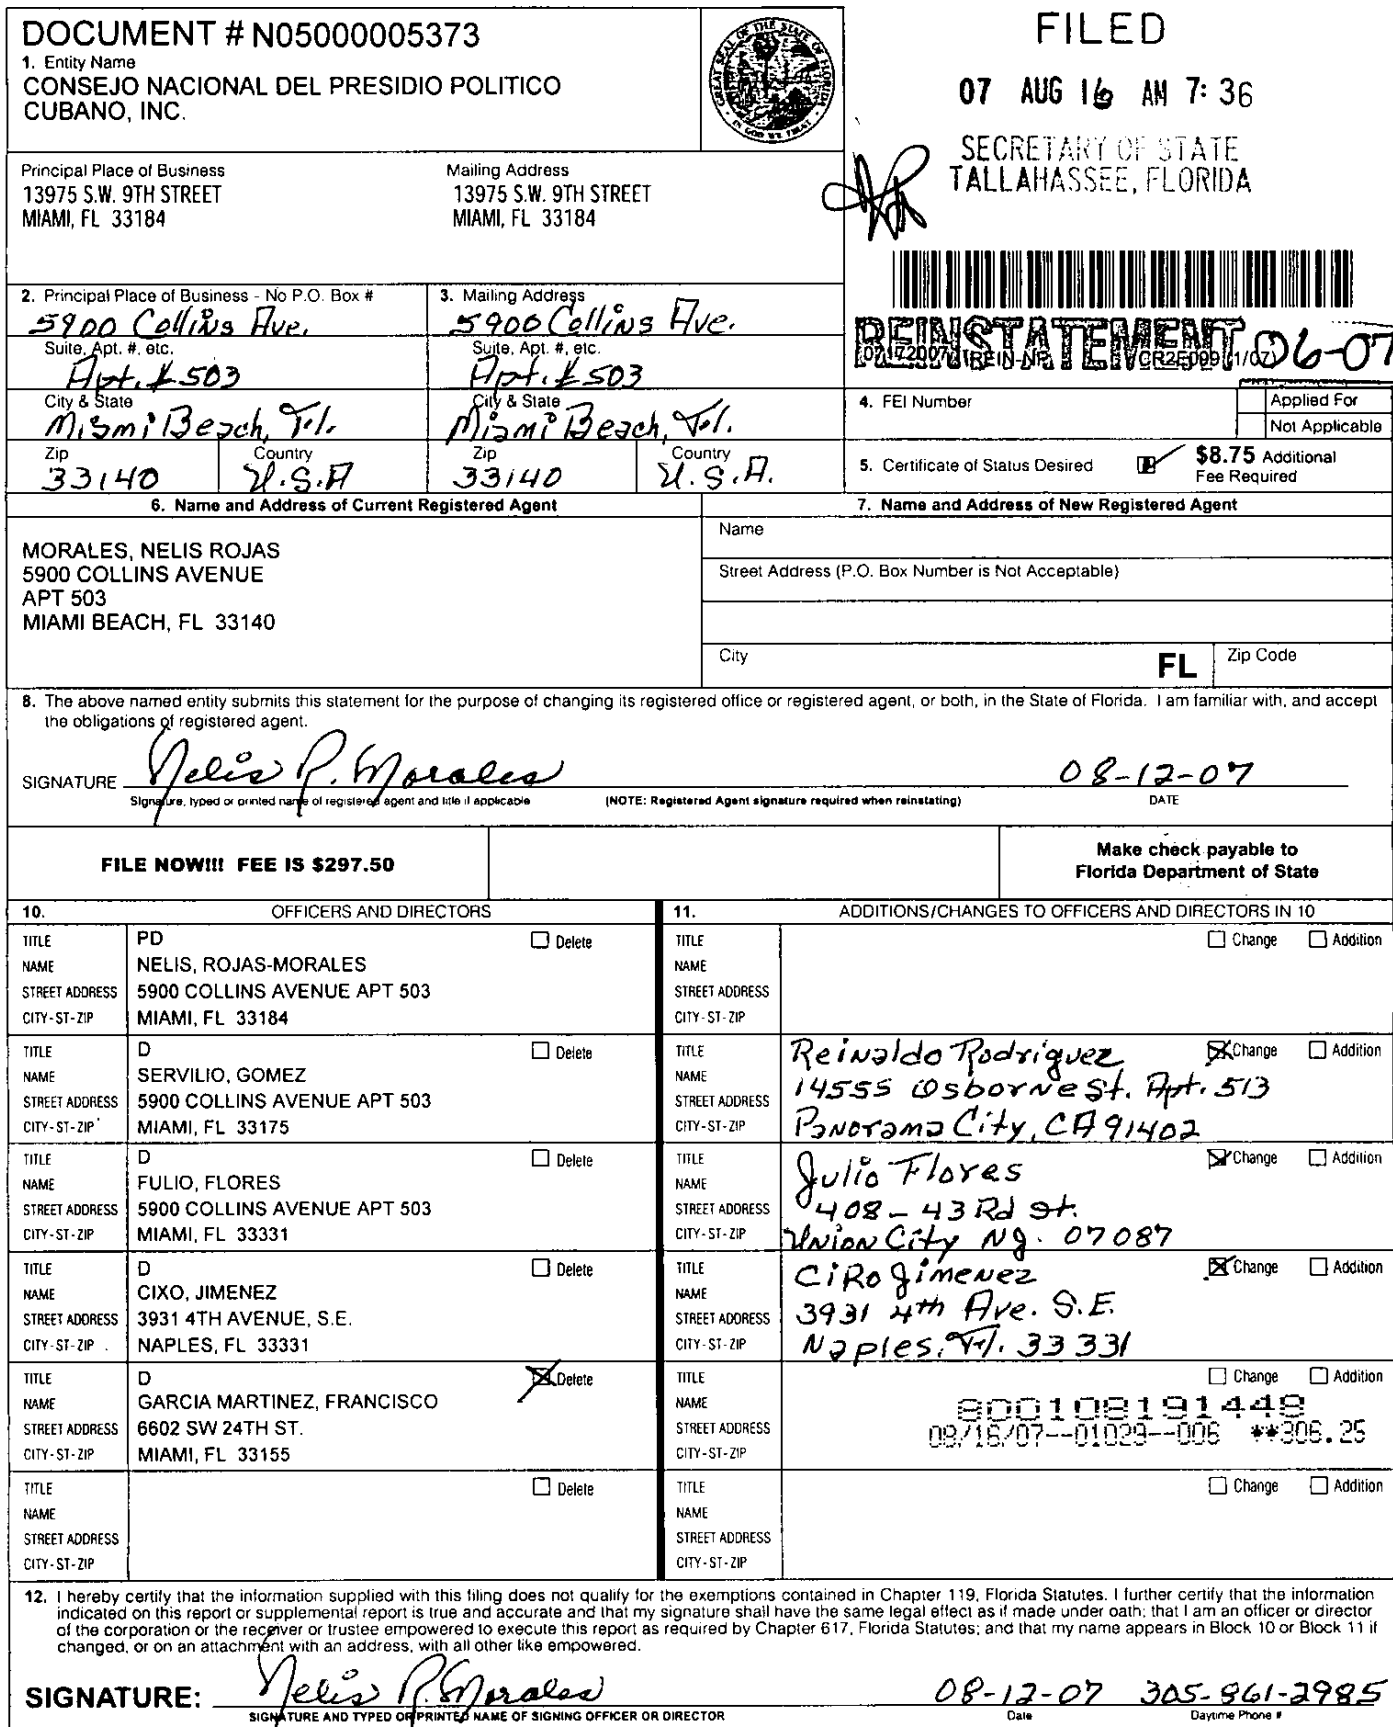 DOCUMENT # N05000005373
1. Entity Name
CONSEJO NACIONAL DEL PRESIDIO POLITICO
CUBANO, INC.
GREAT SEAL OF THE STATE OF FLORIDA
IN GOD WE TRUST
FILED
07 AUG 16 AM 7:36
SECRETARY OF STATE
TALLAHASSEE, FLORIDA
Principal Place of Business
13975 S.W. 9TH STREET
MIAMI, FL 33184
Mailing Address
13975 S.W. 9TH STREET
MIAMI, FL 33184
REINSTATEMENT 06-07
07172007 REIN-NP CR2E099 (1/07)
2. Principal Place of Business - No P.O. Box #
5900 Collins Ave.
Suite, Apt. #, etc.
Apt. # 503
City & State
Miami Beach, Fl.
Zip
33140
Country
U.S.A
3. Mailing Address
5900 Collins Ave.
Suite, Apt. #, etc.
Apt. # 503
City & State
Miami Beach, Fl.
Zip
33140
Country
U.S.A.
4. FEI Number
Applied For
Not Applicable
5. Certificate of Status Desired
$8.75 Additional
Fee Required
6. Name and Address of Current Registered Agent
MORALES, NELIS ROJAS
5900 COLLINS AVENUE
APT 503
MIAMI BEACH, FL 33140
7. Name and Address of New Registered Agent
Name
Street Address (P.O. Box Number is Not Acceptable)
City
FL
Zip Code
8. The above named entity submits this statement for the purpose of changing its registered office or registered agent, or both, in the State of Florida. I am familiar with, and accept
the obligations of registered agent.
SIGNATURE Nelis R. Morales 08-12-07
Signature, typed or printed name of registered agent and title if applicable (NOTE: Registered Agent signature required when reinstating) DATE
FILE NOW!!! FEE IS $297.50
Make check payable to
Florida Department of State
10. OFFICERS AND DIRECTORS
TITLE PD Delete
NAME NELIS, ROJAS-MORALES
STREET ADDRESS 5900 COLLINS AVENUE APT 503
CITY-ST-ZIP MIAMI, FL 33184
TITLE D Delete
NAME SERVILIO, GOMEZ
STREET ADDRESS 5900 COLLINS AVENUE APT 503
CITY-ST-ZIP MIAMI, FL 33175
TITLE D Delete
NAME FULIO, FLORES
STREET ADDRESS 5900 COLLINS AVENUE APT 503
CITY-ST-ZIP MIAMI, FL 33331
TITLE D Delete
NAME CIXO, JIMENEZ
STREET ADDRESS 3931 4TH AVENUE, S.E.
CITY-ST-ZIP NAPLES, FL 33331
TITLE D Delete
NAME GARCIA MARTINEZ, FRANCISCO
STREET ADDRESS 6602 SW 24TH ST.
CITY-ST-ZIP MIAMI, FL 33155
TITLE Delete
NAME
STREET ADDRESS
CITY-ST-ZIP
11. ADDITIONS/CHANGES TO OFFICERS AND DIRECTORS IN 10
TITLE Change Addition
NAME
STREET ADDRESS
CITY-ST-ZIP
TITLE Reinaldo Rodriguez Change Addition
NAME
STREET ADDRESS 14555 Osborne St. Apt. 513
CITY-ST-ZIP Panorama City, CA 91402
TITLE Julio Flores Change Addition
NAME
STREET ADDRESS 408-43Rd St.
CITY-ST-ZIP Union City NJ. 07087
TITLE Ciro Jimenez Change Addition
NAME
STREET ADDRESS 3931 4th Ave. S.E.
CITY-ST-ZIP Naples, Fl. 33331
TITLE Change Addition
NAME 800108191448
STREET ADDRESS 08/16/07--01029--006 **306.25
CITY-ST-ZIP
TITLE Change Addition
NAME
STREET ADDRESS
CITY-ST-ZIP
12. I hereby certify that the information supplied with this filing does not qualify for the exemptions contained in Chapter 119, Florida Statutes. I further certify that the information
indicated on this report or supplemental report is true and accurate and that my signature shall have the same legal effect as if made under oath; that I am an officer or director
of the corporation or the receiver or trustee empowered to execute this report as required by Chapter 617, Florida Statutes; and that my name appears in Block 10 or Block 11 if
changed, or on an attachment with an address, with all other like empowered.
SIGNATURE: Nelis R. Morales 08-12-07 305-861-2985
SIGNATURE AND TYPED OR PRINTED NAME OF SIGNING OFFICER OR DIRECTOR Date Daytime Phone #